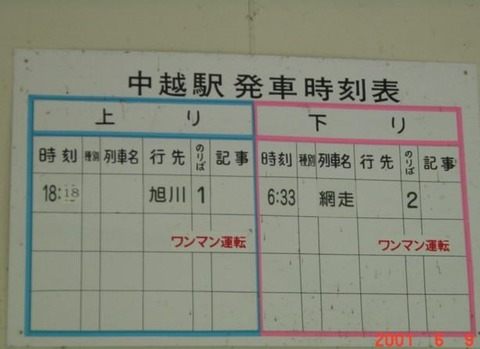 中越駅発車時刻表
上り 下り
時刻 種別 列車名 行先 のりば 記事 時刻 種別 列車名 行先 のりば 記事
18:18 旭川 1 6:33 網走 2
ワンマン運転 ワンマン運転
2001 6 9